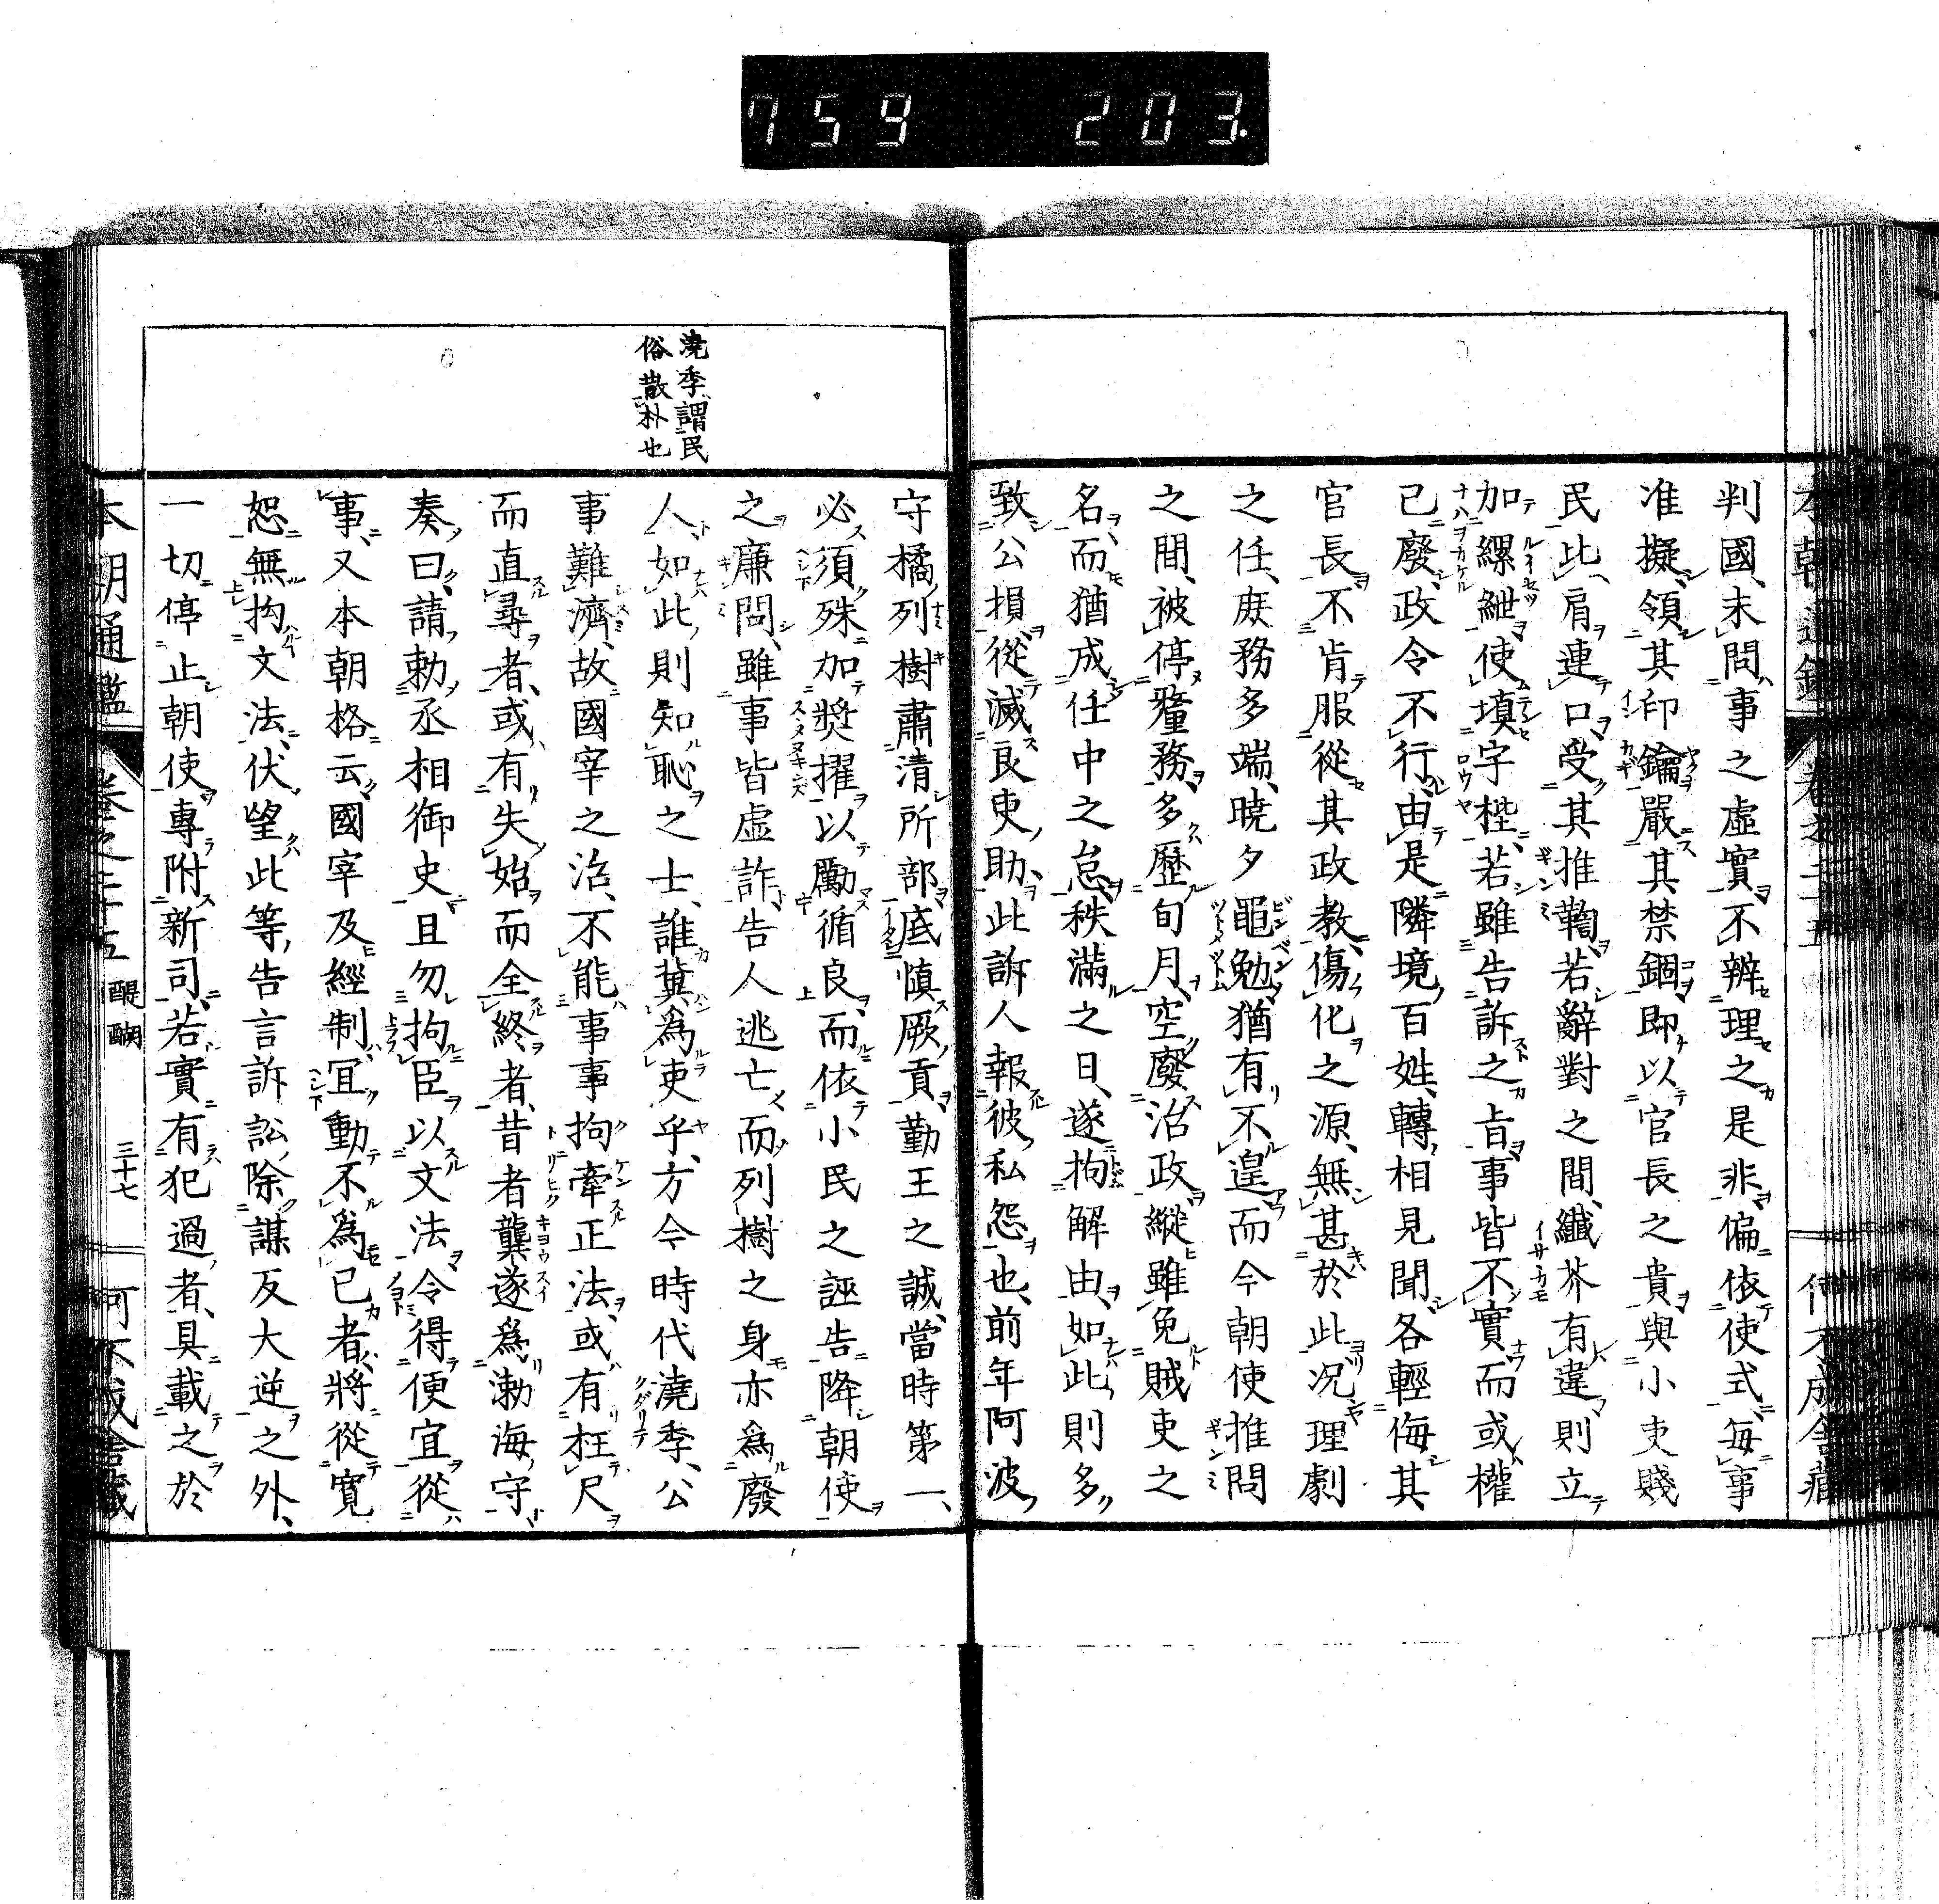 759 203.
判國、未問事之虛實不辨理之是非偏依使式、每事
准擬、領其印鑰、嚴其禁錮、即以官長之貴與小吏賤
民、比肩連口、受其推鞫、若辭對之間、纖芥有違則立
加縲紲、使塡牢狴、若雖告訴之旨、事皆不實而或權
已廢、政令不行、由是隣境百姓、轉相見聞、各輕侮其
官長不肯服從其政教、傷化之源、無甚於此、況理劇
之任、庶務多端、曉夕黽勉、猶有不遑、而今朝使推問
之間、被停釐務、多歷旬月、空廢治政、縱雖免賊吏之
名、而猶成任中之怠、秩滿之日、遂拘解由、如此、則多
致公損、從滅良吏、助此訴人報彼私怨也、前年阿波
守橘列樹肅清所部、底愼厥貢、勤王之誠、當時第一、
必須殊加奬擢以勵循良、而依小民之誣告降朝使
之廉問、雖事皆虛詐、告人逃亡、而列樹之身亦爲廢
人、如此、則知恥之士、誰冀爲吏乎、方今時代澆季、公
事難濟、故國宰之治、不能事事拘牽正法、或有枉尺
而直尋者、或有失始而全終者、昔者龔遂爲渤海守、
奏曰、請勅丞相御史且勿拘臣以文法令得便宜從
事、又本朝格云、國宰及經制宜、動不爲己者、將從寬
恕無拘文法、伏望此等告言訴訟、除謀反大逆之外、
一切停止朝使專附新司、若實有犯過者、具載之於
澆季謂民
俗散朴也
本朝通鑑 卷之二十五 醍醐 三十七